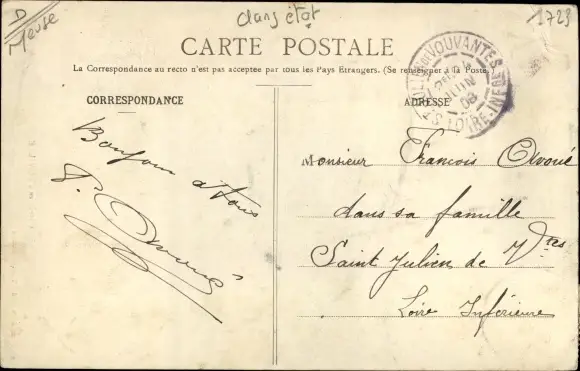 D
Meuse
Clans état
1723
CARTE POSTALE
La Correspondance au recto n'est pas acceptée par tous les Pays Étrangers. (Se renseigner à la Poste.)
CORRESPONDANCE
ADRESSE
VOUVANTES
JUIN
08
LOIRE-INFRE
Bonjour à tous
P. Avoué
Monsieur Francois Avoué
dans sa famille
Saint Julien de Vtes
Loire Inférieure